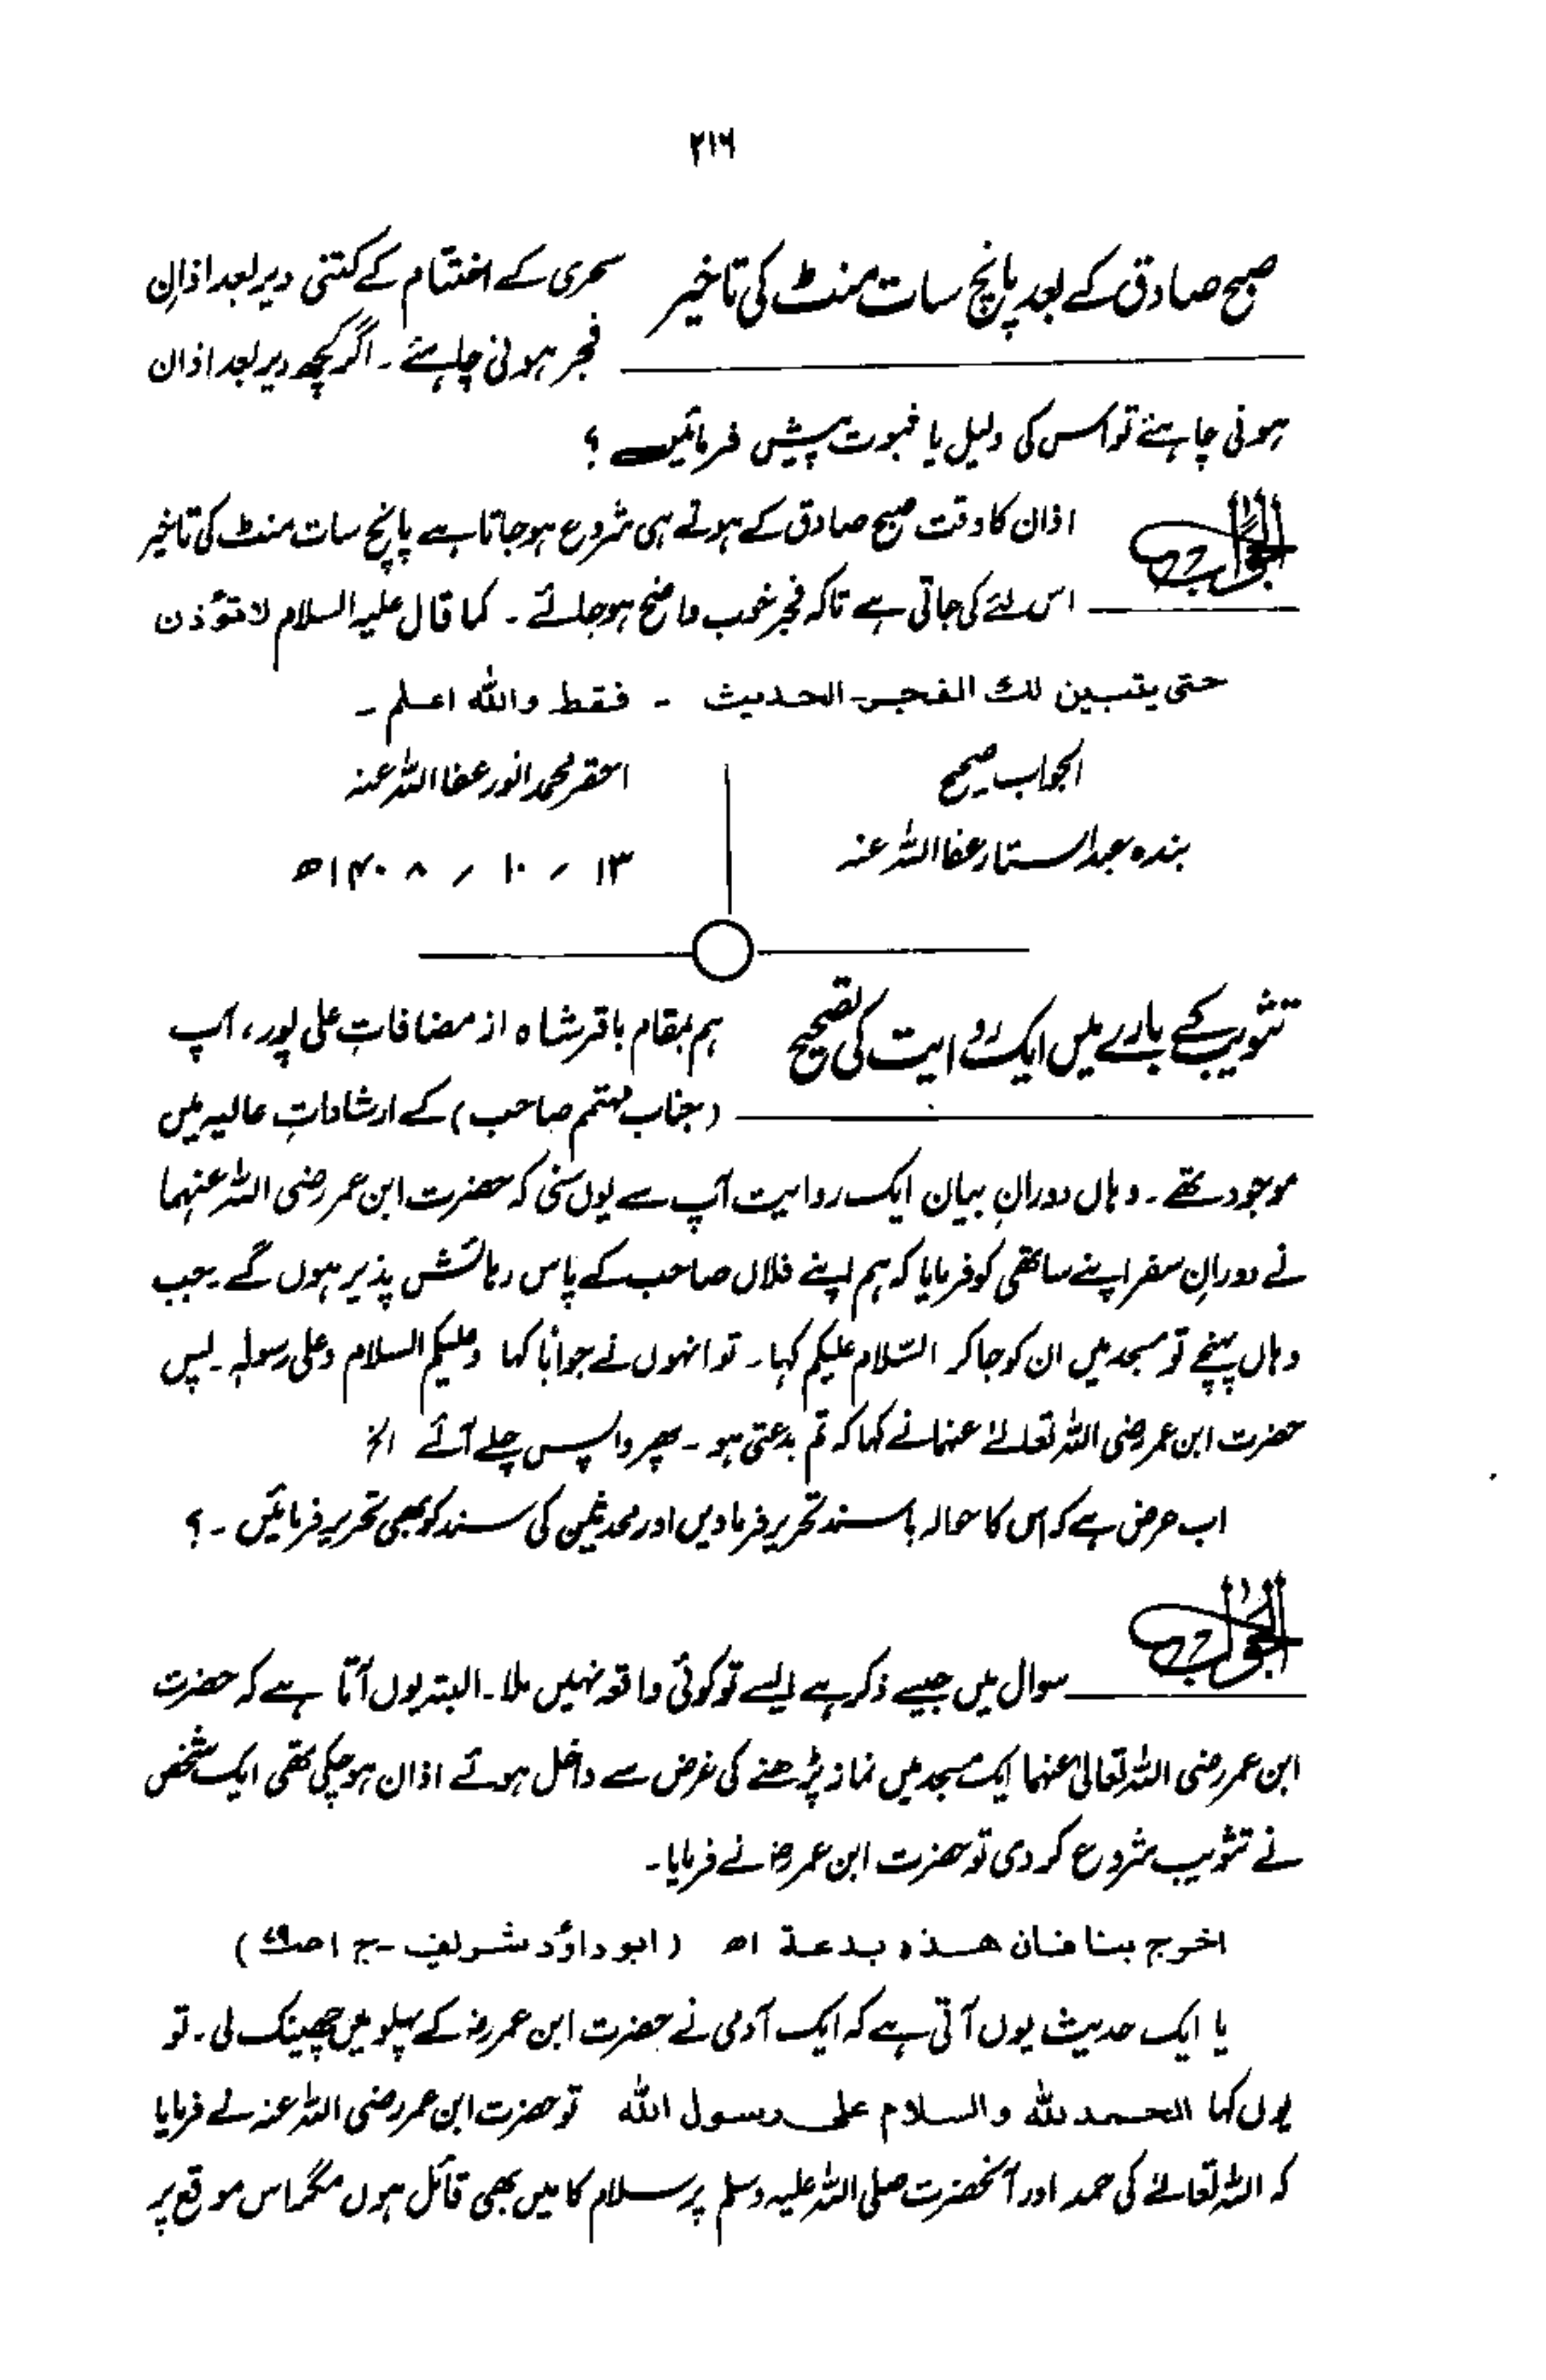 ۲۱۶
صبح صادق کے بعد پانچ سات منٹ کی تاخیر
سحری کے اختتام کے کتنی دیر بعد اذانِ
فجر ہونی چاہئے۔ اگر کچھ دیر بعد اذان
ہونی چاہئے تو اس کی دلیل یا ثبوت پیش فرمائیں؟
الجواب
اذان کا وقت صبح صادق کے ہوتے ہی شروع ہوجاتا ہے پانچ سات منٹ کی تاخیر
اس لئے کی جاتی ہے تاکہ فجر خوب واضح ہوجائے۔ کما قال علیہ السلام لا تؤذن
حتی یتبین لك الفجر الحدیث ۔ فقط واللہ اعلم۔
الجواب صحیح
بندہ عبدالستار عفا اللہ عنہ
احقر محمد انور عفا اللہ عنہ
۱۳ / ۱۰ / ۱۴۰۸ھ
تثویب کے بارے میں ایک روایت کی تصحیح
ہم بمقام باقر شاہ از مضافاتِ علی پور، آپ
(جناب مہتمم صاحب) کے ارشاداتِ عالیہ میں
موجود تھے۔ وہاں دورانِ بیان ایک روایت آپ سے یوں سنی کہ حضرت ابن عمر رضی اللہ عنہما
نے دورانِ سفر اپنے ساتھی کو فرمایا کہ ہم اپنے فلاں صاحب کے پاس رہائش پذیر ہوں گے۔ جب
وہاں پہنچے تو مسجد میں ان کو جاکر السّلام علیکم کہا۔ تو انہوں نے جوابًا کہا وعلیکم السلام وعلی رسولہٖ۔ پس
حضرت ابن عمر رضی اللہ تعالےٰ عنہما نے کہا کہ تم بدعتی ہو۔ پھر واپس چلے آئے الخ
اب عرض ہے کہ اس کا حوالہ باسند تحریر فرمادیں اور محدثین کی سند کو بھی تحریر فرمائیں۔؟
الجواب
سوال میں جیسے ذکر ہے ایسے تو کوئی واقعہ نہیں ملا۔ البتہ یوں آتا ہے کہ حضرت
ابن عمر رضی اللہ تعالیٰ عنہما ایک مسجد میں نماز پڑھنے کی غرض سے داخل ہوئے اذان ہوچکی تھی ایک شخص
نے تثویب شروع کر دی تو حضرت ابن عمرؓ نے فرمایا۔
اخرج بنا فان هذه بدعة اھ (ابوداؤد شریف۔ ج ا)
یا ایک حدیث یوں آتی ہے کہ ایک آدمی نے حضرت ابن عمرؓ کے پہلو میں چھینک لی۔ تو
یوں کہا الحمد للہ والسلام علی رسول اللہ تو حضرت ابن عمر رضی اللہ عنہ نے فرمایا
کہ اللہ تعالےٰ کی حمد اور آنحضرت صلی اللہ علیہ وسلم پر سلام کا میں بھی قائل ہوں مگر اس موقع پر